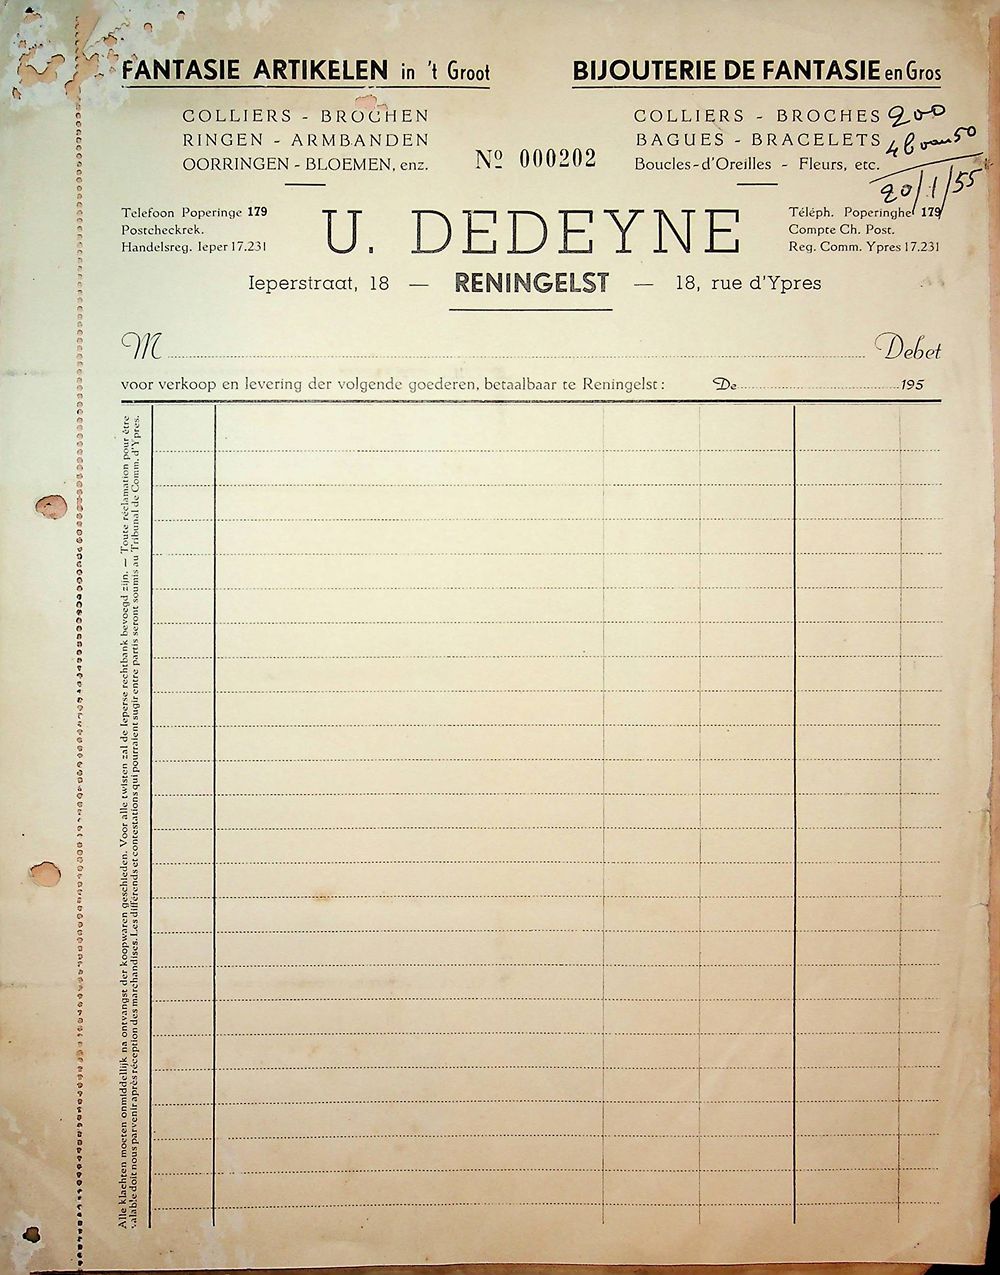 FANTASIE ARTIKELEN in 't Groot
COLLIERS - BROCHEN
RINGEN - ARMBANDEN
OORRINGEN - BLOEMEN, enz.
Nº 000202
BIJOUTERIE DE FANTASIE en Gros
COLLIERS - BROCHES
BAGUES - BRACELETS
Boucles-d'Oreilles - Fleurs, etc.
200
4 B van 50
20/1/55
Telefoon Poperinge 179
Postcheckrek.
Handelsreg. Ieper 17.231
U. DEDEYNE
Téléph. Poperinghe 179
Compte Ch. Post.
Reg. Comm. Ypres 17.231
Ieperstraat, 18 — RENINGELST — 18, rue d'Ypres
M Debet
voor verkoop en levering der volgende goederen, betaalbaar te Reningelst : De 195
Alle klachten moeten onmiddellijk na ontvangst der koopwaren geschieden. Voor alle twisten zal de Ieperse rechtbank bevoegd zijn. — Toute réclamation pour être
valable doit nous parvenir après réception des marchandises. Les différends et contestations qui pourraient sugir entre partis seront soumis au Tribunal de Comm. d'Ypres.